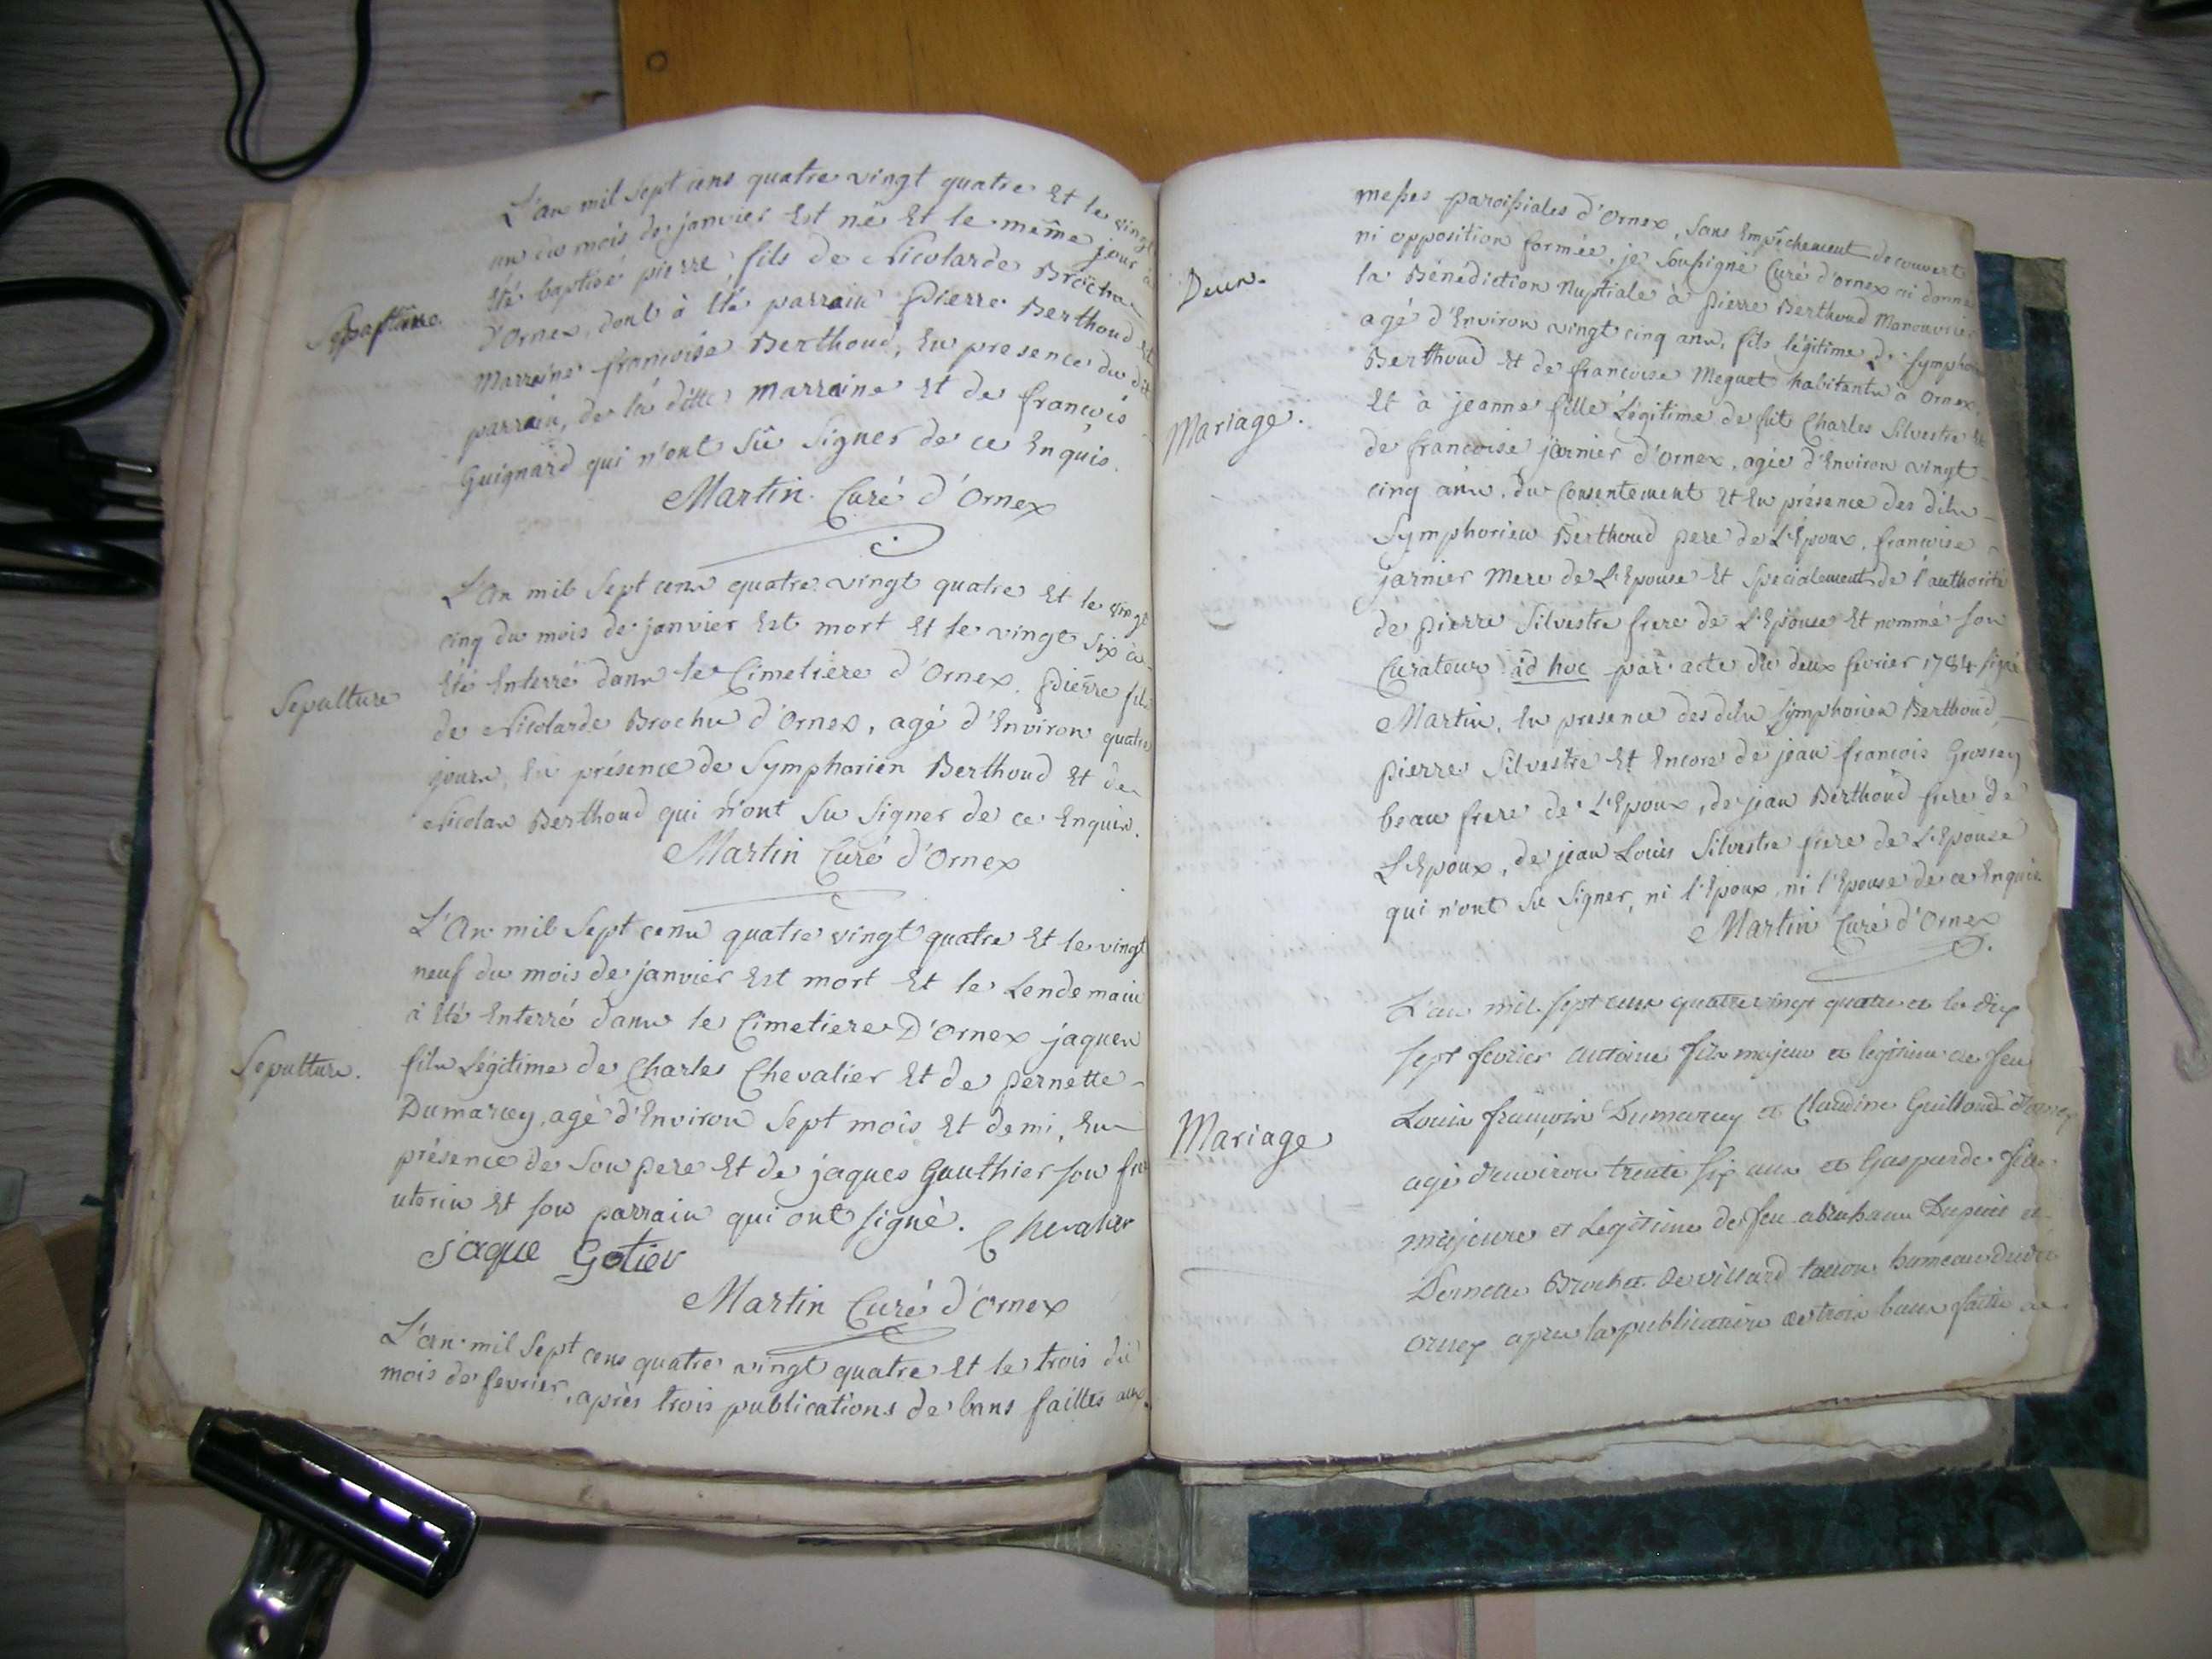 L'an mil sept cens quatre vingt quatre Et le vingt
un du mois de janvier Est né Et le même jour à
Été baptisé pierre, fils de Nicolarde Brochu
d'Ornex, dont à Été parrain Pierre Berthoud et
Marraine françoise Berthoud, En presence du dit
parrain, de la ditte marraine Et de françois
Guignard qui n'ont Sû Signer de ce Enquis.
Martin Curé d'Ornex
L'An mil Sept cens quatre vingt quatre Et le vingt
cinq du mois de janvier Est mort Et le vingt Six a
Sepulture
Été Enterré dans le Cimetiere d'Ornex, Pierre fils
de Nicolarde Brochu d'Ornex, agé d'Environ quatre
jours, En présence de Symphorien Berthoud Et de
Nicolas Berthoud qui n'ont Su Signer de ce Enquis.
Martin Curé d'Ornex
L'An mil Sept cens quatre vingt quatre Et le vingt
neuf du mois de janvier Est mort Et le Lendemain
à Été Enterré dans le Cimetiere D'Ornex jaques
Sepulture.
fils Légitime de Charles Chevalier Et de Pernette
Dumarcey, agé d'Environ Sept mois Et demi, En
présence de Son pere Et de jaques Gauthier son frere
uterin Et son parrain qui ont signé. Chevalier
Jaque Gotier
Martin Curé d'Ornex
L'an mil Sept cens quatre vingt quatre Et le trois du
mois de fevrier, après trois publications de bans faittes aux
messes paroissiales d'Ornex, Sans Empêchement decouvert
ni opposition formée, je Soussigné Curé d'ornex ai donné
Deux.
la Bénédiction Nuptiale à Pierre Berthoud Manouvrier
agé d'Environ vingt cinq ans, fils légitime de Symphorien
Berthoud Et de françoise Meguet habitants à Ornex,
Mariage.
Et à jeanne fille Légitime de fut Charles Silvestre Et
de françoise jarnier d'Ornex, agée d'Environ vingt
cinq ans, du Consentement Et En présence des dits
Symphorien Berthoud pere de L'Epoux, françoise
jarnier Mere de L'Epouse Et Specialement de l'authorité
de pierre Silvestre frere de L'Epouse Et nommé son
Curateur ad hoc par acte du deux fevrier 1784 signé
Martin, En presence des dits Symphorien Berthoud,
pierre Silvestre Et Encore de jean francois Grossey
beau frere de L'Epoux, de jean Berthoud frere de
L'Epoux, de jean Louis Silvestre frere de L'Epouse
qui n'ont Su Signer, ni l'Epoux, ni l'Epouse de ce Enquis
Martin Curé d'Ornex
L'an mil sept cens quatre vingt quatre et le dix
sept fevrier Antoine fils majeur et legitime de feu
Louis françois Dumarcey et Claudine Guilloud d'ornex
Mariage
agé d'environ trente six ans et Gasparde fille
majeure et Legitime de feu abraham Dupuis et
Brochet de villard tacon hameau
ornex apres la publication de trois bans faitte